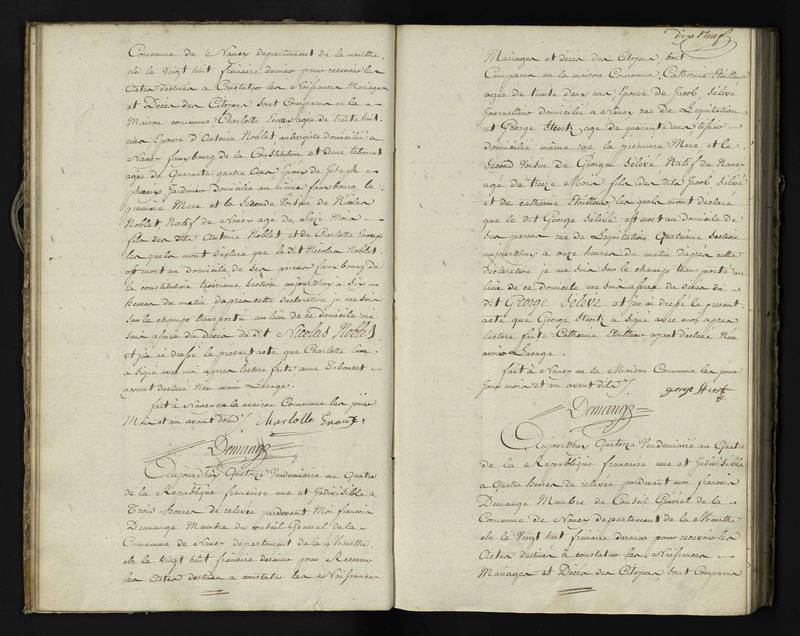 Commune de Nancy departement de la meurthe
élu le Vingt huit frimaire dernier pour recevoir les
Actes destinés a Constater les Naissances Mariages
et Décès des Citoyens sont Comparus en la
Maison commune Charlotte agée de trente huit
ans Epouse d'Antoine Noblet aubergiste domiciliés a
Nancy fauxbourg de la Constitution et Anne
agée de Quarante quatre ans Epouse de Joseph
Jardinier Domicilié au même fauxbourg la
première Mere et la Seconde Voisine de Nicolas
Noblet Natif de Nancy age de Seize Mois
fils des dits Antoine Noblet et de Charlotte
lesquels mont déclaré que le dit Nicolas Noblet
est mort au domicile de Ses parens faux bourg de
la constitution troisieme Section aujourdhuy a Six
heures du matin dapres cette declaration je me suis
sur le champs transporté au lieu de ce domicile me
suis assuré du Décès du dit Nicolas Noblet
et j'en ai dressé le present acte que Charlotte
a signé avec moi apres lecture faite anne
ayant declaré Neu avoir Lusage.
fait à Nancy en la maison Commune les jour
Mois et an avant dits Charlotte
Demange
Aujourdhuy Quatorze Vendemiaire an Quatre
de la Republique francaise une et Indivisible a
Trois heures de relevée pardevant Moi francois
Demange Membre du Conseil General de la
Commune de Nancy departement de la Meurthe
élu le Vingt huit frimaire dernier pour Recevoir
les Actes destinés a constater les Naissances
dix Neuf
Mariages et décès des Citoyens sont
Comparus en la maison Commune, Catherine
agée de trente deux ans Epouse de Jacob Selevé
Journallier domiciliés a Nancy rue de Lequitation
et George Stortz age de quarante ans
domicilié même rue la première Mere et le
Second Voisin de George Selevé Natif de Nancy
age de treize Mois fils des dits Jacob Selevé
et de catherine lesquels mont declaré
que le dit George Selevé est mort au domicile de
Ses parens rue de Lequitation Quatrieme Section
aujourdhuy a onze heures du matin dapres cette
déclaration je me suis sur le champs transporté au
lieu de ce domicile me suis assuré du décès du
dit George Selevé et j'en ai dressé le present
acte que George Stortz a signé avec moi apres
lecture faite Catherine ayant declaré Neu
avoir Lusage.
fait à Nancy en la Maison Commune les jour
Jour mois et an avant dits
Demange
Aujourdhuy Quatorze Vendemiaire an Quatre
de la Republique francaise une et Indivisible
a Quatre heures de relevée pardevant moi francois
Demange Membre du Conseil Général de la
Commune de Nancy departement de la Meurthe
élu le Vingt huit frimaire dernier pour recevoir les
Actes destinés a constater les Naissances
Mariages et Décès des Citoyens sont Comparus